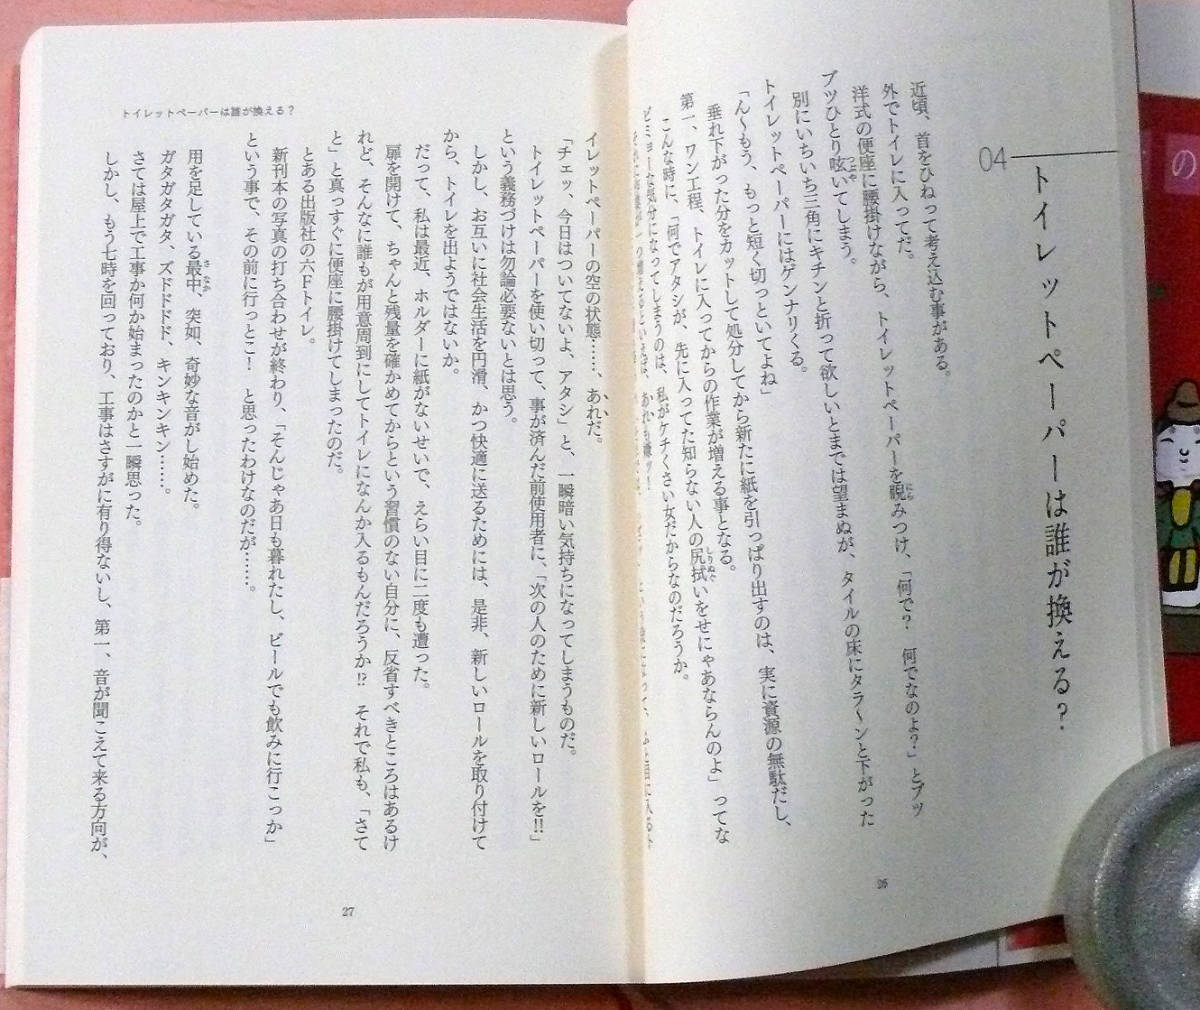 04
トイレットペーパーは誰が換える？
近頃、首をひねって考え込む事がある。
外でトイレに入ってだ。
洋式の便座に腰掛けながら、トイレットペーパーを睨みつけ、「何で？　何でなのよ？」とブツ
ブツひとり呟いてしまう。
別にいちいち三角にキチンと折って欲しいとまでは望まぬが、タイルの床にタラ〜ンと下がった
トイレットペーパーにはゲンナリくる。
「ん〜もう、もっと短く切っといてよね」
垂れ下がった分をカットして処分してから新たに紙を引っぱり出すのは、実に資源の無駄だし、
第一、ワン工程、トイレに入ってからの作業が増える事となる。
こんな時に、「何でアタシが、先に入ってた知らない人の尻拭いをせにゃあならんのよ」ってな
ビミョーな気分になってしまうのは、私がケチくさい女だからなのだろうか。
26
トイレットペーパーは誰が換える？
イレットペーパーの空の状態……、あれだ。
「チェッ、今日はついてないよ、アタシ」と、一瞬暗い気持ちになってしまうものだ。
トイレットペーパーを使い切って、事が済んだ前使用者に、「次の人のために新しいロールを!!」
という義務づけは勿論必要ないとは思う。
しかし、お互いに社会生活を円滑、かつ快適に送るためには、是非、新しいロールを取り付けて
から、トイレを出ようではないか。
だって、私は最近、ホルダーに紙がないせいで、えらい目に二度も遭った。
扉を開けて、ちゃんと残量を確かめてからという習慣のない自分に、反省すべきところはあるけ
れど、そんなに誰もが用意周到にしてトイレになんか入るもんだろうか!?　それで私も、「さて
と」と真っすぐに便座に腰掛けてしまったのだ。
とある出版社の六Ｆトイレ。
新刊本の写真の打ち合わせが終わり、「そんじゃあ日も暮れたし、ビールでも飲みに行こっか」
という事で、その前に行っとこ！　と思ったわけなのだが……。
用を足している最中、突如、奇妙な音がし始めた。
ガタガタガタ、ズドドドド、キンキンキン……。
さては屋上で工事か何か始まったのかと一瞬思った。
しかし、もう七時を回っており、工事はさすがに有り得ないし、第一、音が聞こえて来る方向が、
27
の